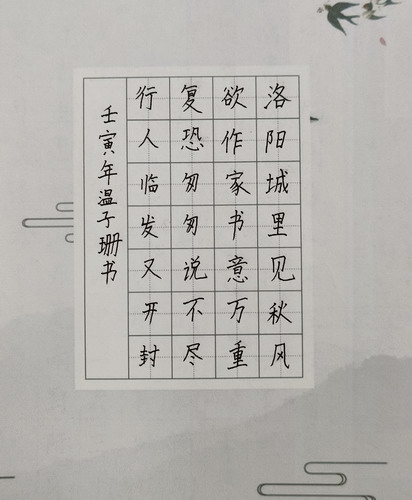 洛阳城里见秋风
欲作家书意万重
复恐匆匆说不尽
行人临发又开封
壬寅年温子珊书